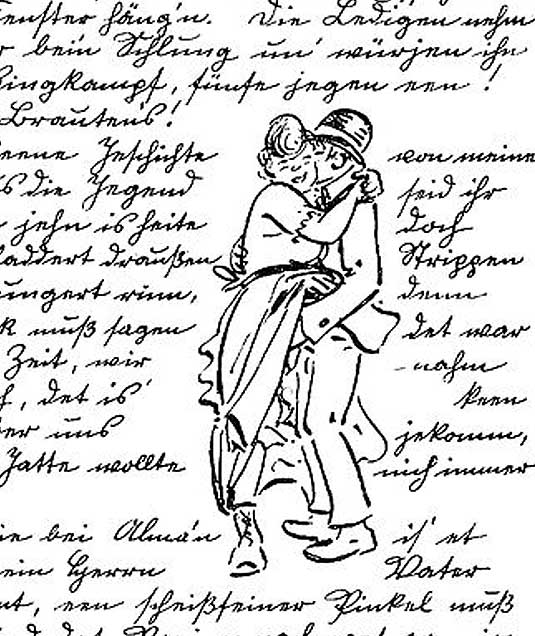 enster häng'n. Die Ledigen nehm
r bein Schlung un' würjen ihn
Ringkampf, fünfe jegen een!
Brautens!
eene Jeschichte von meine
s die Jegend seid ihr
jehn is heite doch
laddert draußen Strippen
üngert rinn, denn
k muß sagen det war
Zeit, wir nahm
f, det is' keen
er uns jekomm,
Jatte wollte nich immer
ie bei Alman is' et
ein Herrn Vater
nt, een scheißfeiner Pinkel muß